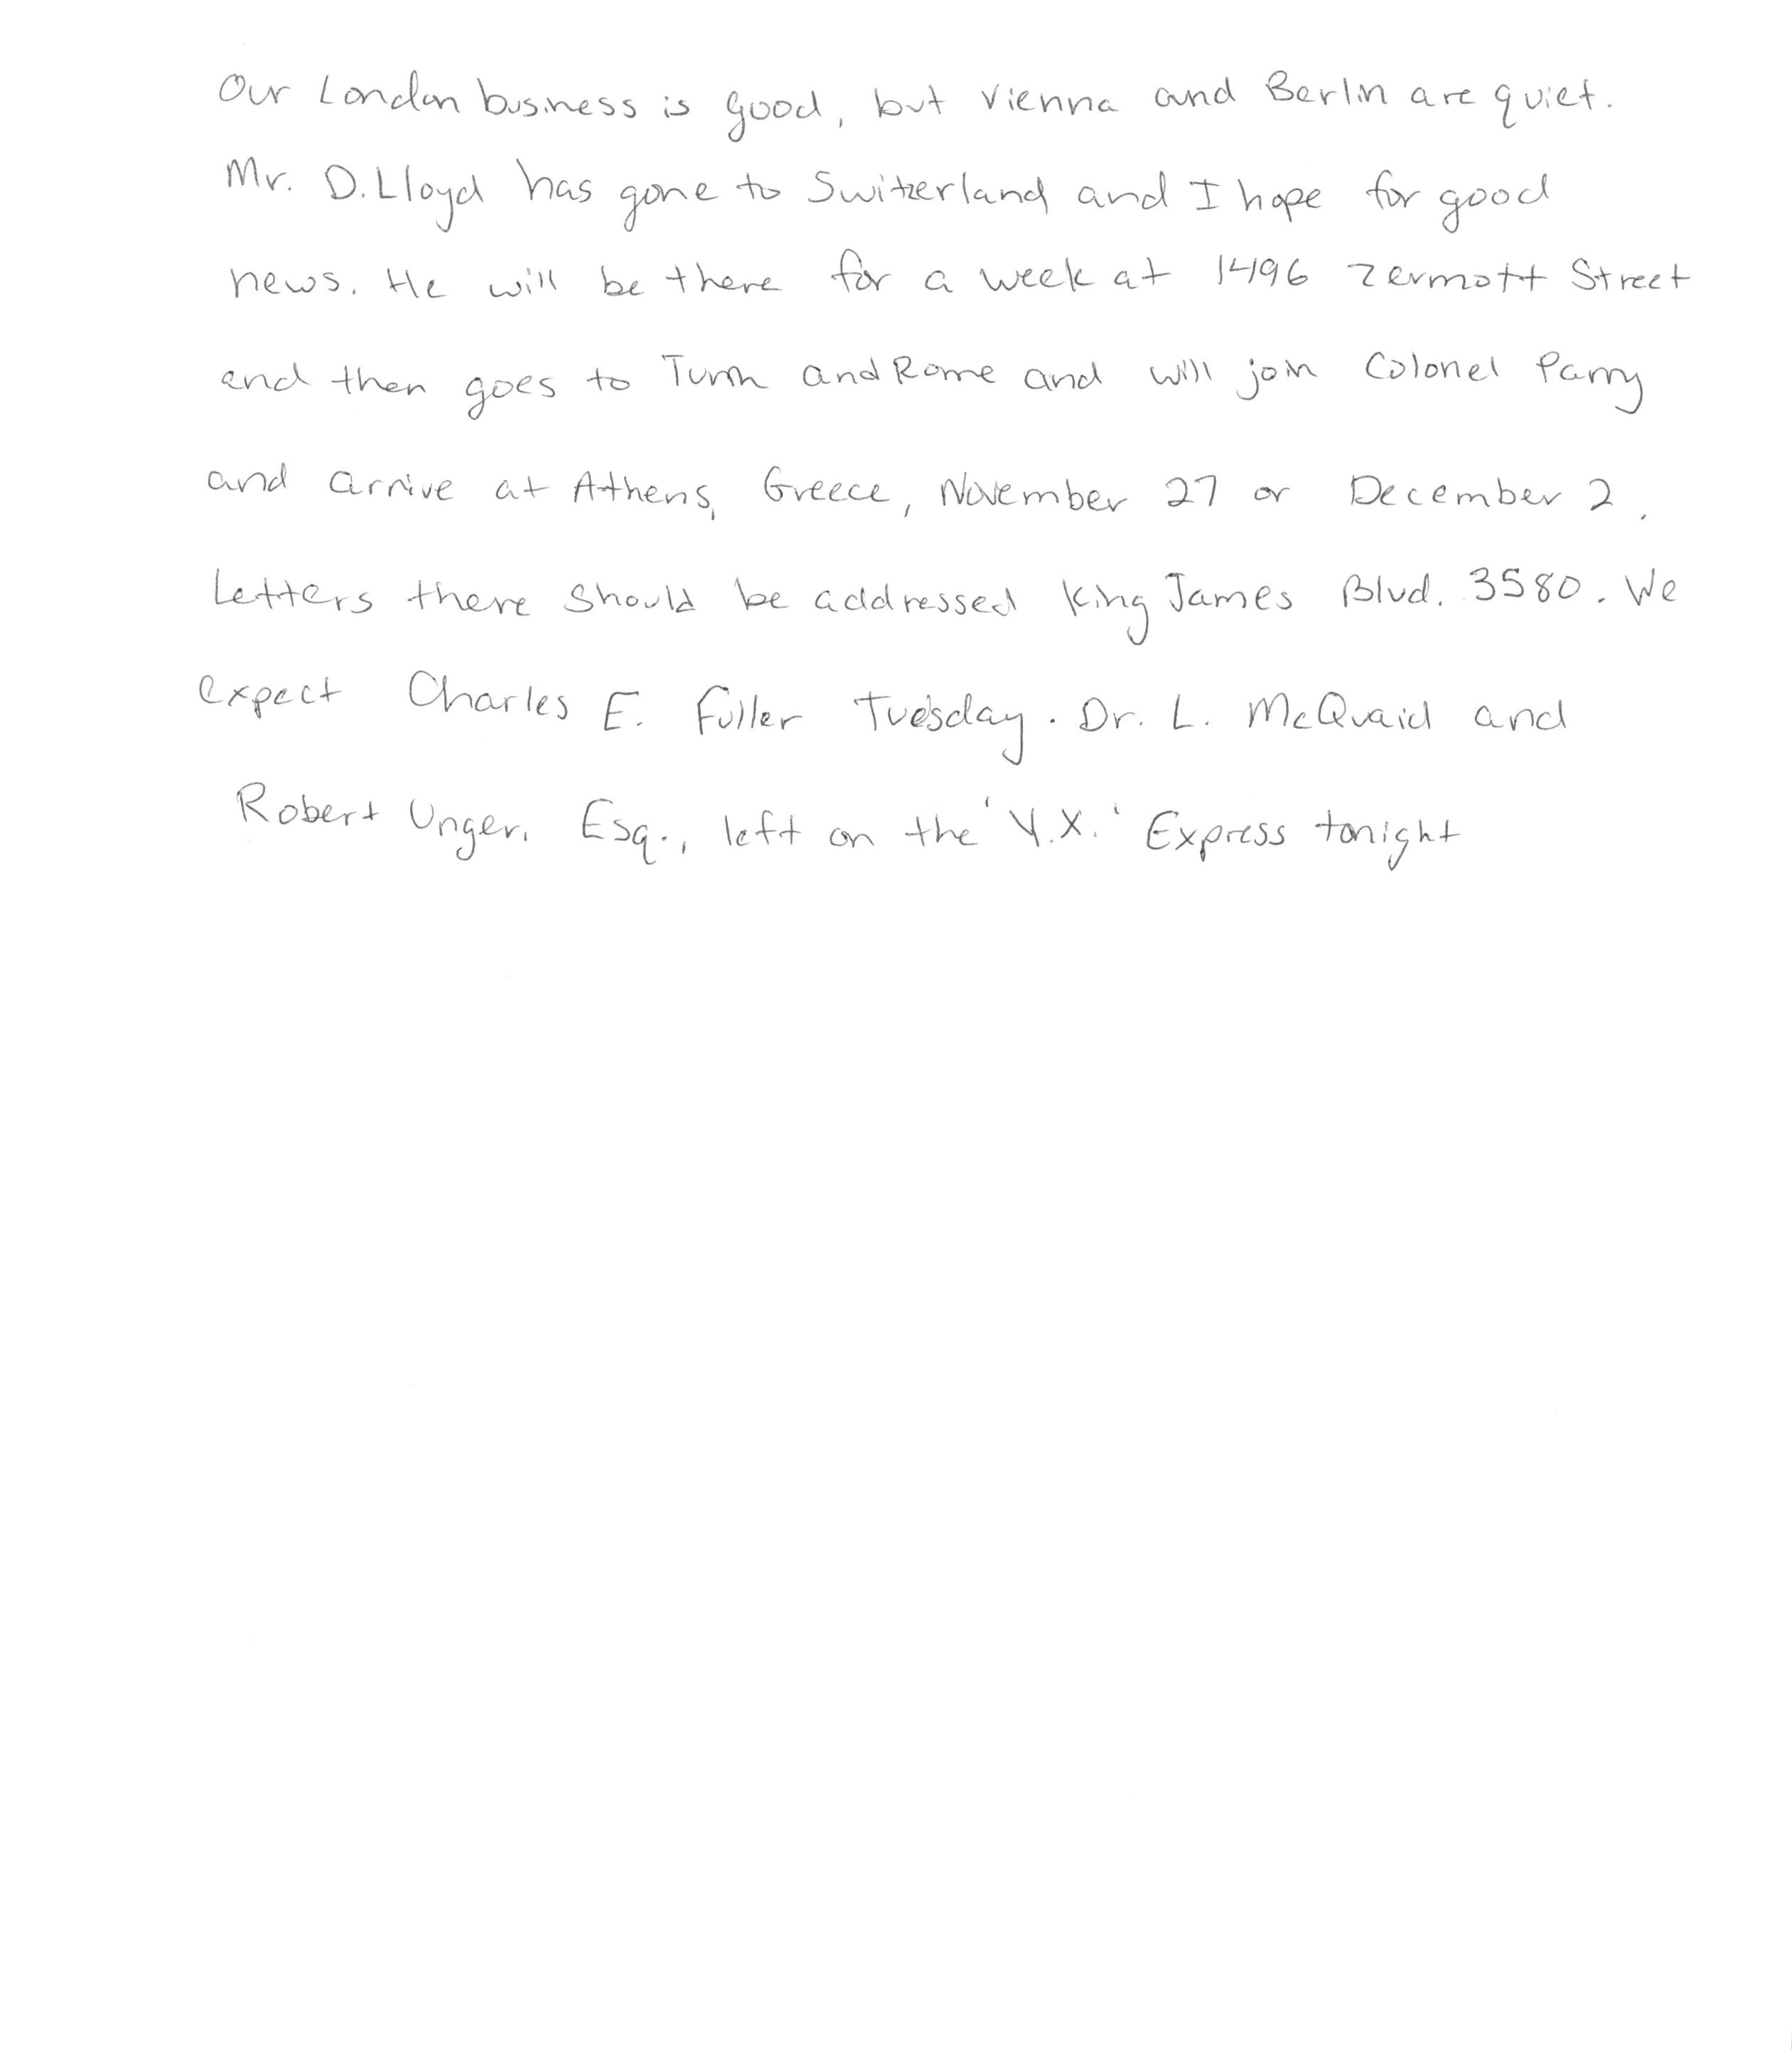 Our London business is good, but Vienna and Berlin are quiet.
Mr. D. Lloyd has gone to Switzerland and I hope for good
news. He will be there for a week at 1496 Zermott Street
and then goes to Turin and Rome and will join Colonel Parry
and arrive at Athens, Greece, November 27 or December 2.
Letters there should be addressed King James Blvd. 3580. We
expect Charles E. Fuller Tuesday. Dr. L. McQuaid and
Robert Unger, Esq., left on the 'Y.X.' Express tonight